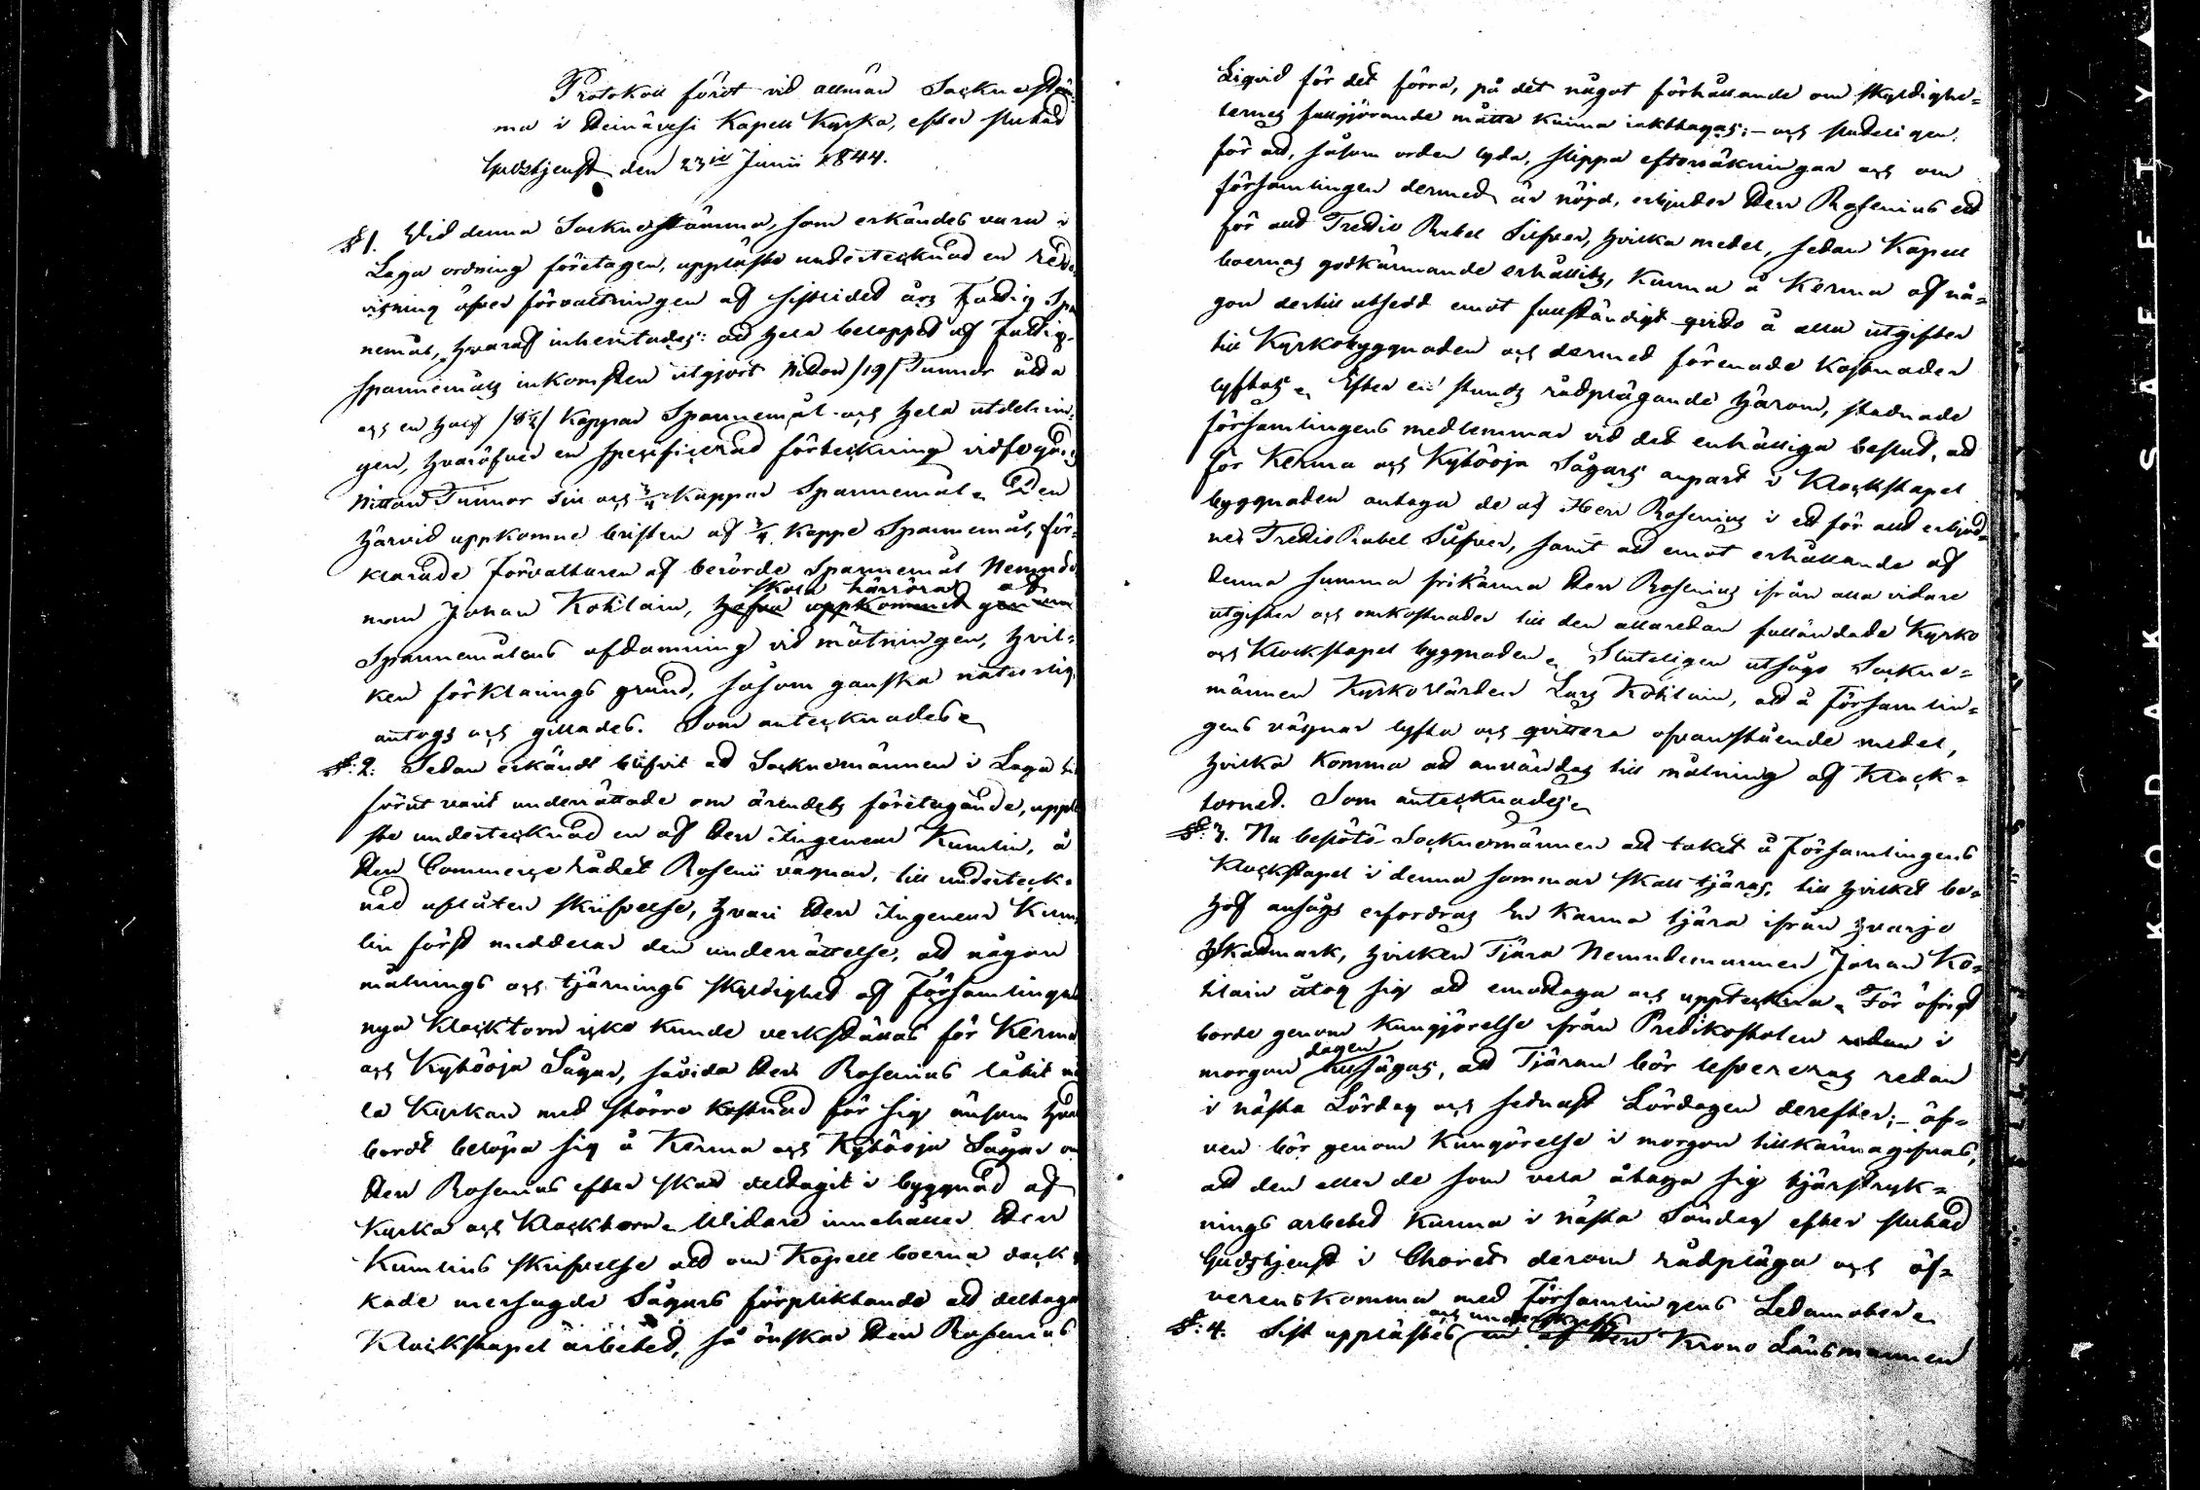 Protokoll fördt vid allmän Sockneståm¬
ma i Heinävesi Kapell Kyrka, efter slutad
Gudstjenst den 23je Junii 1844.
§ 1. Vid denna Socknestämma, som erkändes vara i
Laga ordning företagen, upplästs undertecknad en redo
visning öfver förvaltningen af sistlidet års Fattig Spa
nemål, hvaraf inhemtades: ad hela beloppet af Fattig-
spannemåls inkomsten utgjort Nitton /19/ Tunnor åtta
och en half /8½/ Kappar Spannemål och hela utdelnin¬
gen, hvaröfver en specificerad förteckning vidfogades
Nitton Tunnor Sju och ¾ Kappar Spannemål. Den
härvid uppkomne bristen af ¾ Kappe Spannemål, för¬
klarade förvaltaren af berörde Spannemål Nemnde
man Johan Kohilain, skola härröra af
Spannemålens afdamning vid mätningen, hvil¬
ken förklarings grund, såsom ganska naturlig
antogs och gillades. Som antecknades.
§: 2: Sedan erkändt blifvit ad Socknemännen i Laga tid
förut varit underrättade om ärendets företagande, upplä
ste undertecknad en af Herr Ingenieur Kumlin, å
Herr Commerce Rådet Rosenii vägnar, till underteck¬
nad aflåten skrifvelse, hvari Herr Ingenieur Kum
lin först meddelar den underrättelse, ad någon
målnings och tjärnings skyldighet af Församlingens
nya Klocktorn icke kunde verkställas för Kerma
och Kytöoja Sågar, såvida Herr Rosenius låtit må
la Kyrkan med större kostnad för sig ensam hvad
bordt belöpa sig å Kerma och Kytöoja Sågar om
Herr Rosenius efter skatt deltagit i byggnad af
Kyrka och Klocktorn. Vidare innehåller Herr
Kumlins skrifvelse ad om Kapellboerna dock
kade mersagde Sågars förpliktande ad deltaga
Klockstapel arbetet, så önskar Herr Rosenius
Liqvid för det förra, på det något förhållande om skyldighe¬
ternes fullgörande måtte kunna iakttagas; – och slutligen
för ad, såsom orden lyda, slippa efterräkningar och om
församlingen dermed är nöjd, erbjuder Herr Rosenius ett
för allt Tretio Rubel Silfver, hvilka medel, sedan Kapell
boernas godkännande erhållits, kunna å Kerma af nå¬
gon dertill utsedd emot fullständigt qvitto å alla utgifter
till Kyrkobyggnaden och dermed förenade kostnader
lyftas. Efter en stunds rådplägande härom, stadnade
församlingens medlemmar vid det enhälliga beslut, ad
för Kerma och Kytöoja Sågars anpart i Klockstapel
byggnaden antaga de af Herr Rosenius i ett för allt erbjud
ne Tretio Rubel Silfver, samt ad emot erhållande af
denna summa frikänna Herr Rosenius ifrån alla vidare
utgifter och omkostnader till den allaredan fulländade Kyrko
och Klockstapel byggnaden. Sluteligen utsågo Sockne¬
männen Kyrkovärden Lars Kohilain, ad å församlin¬
gens vägnar lyfta och qvittera ofvanstående medel,
hvilka komma ad användas till målning af Klock¬
tornet. Som antecknades.
§: 3. Nu beslöto Socknemännen ad taket å Församlingens
Klockstapel i denna sommar skall tjäras, till hvilket be¬
hof ansågs erfordras En Kanna tjära ifrån hvarje
Skattmark, hvilken Tjära Nemndemannen Johan Ko¬
hilain åtog sig ad emottaga och uppteckna. För öfrigt
borde genom kungjörelse ifrån Predikostolen redan i
morgon dagen tillsägas, ad Tjäran bör lefvereras redan
i nästa Lördag och sednast Lördagen derefter; – äf¬
ven bör genom kungörelse i morgon tillkännagifvas,
ad den eller de som vela åtaga sig tjärstryk¬
nings arbetet kunna i nästa Söndag efter slutad
Gudstjenst i Choret derom rådpläga och öf¬
verenskomma med Församlingens Ledamöter.
§: 4. Sist upplästes och underskrefs en af Herr Krono Länsmannen